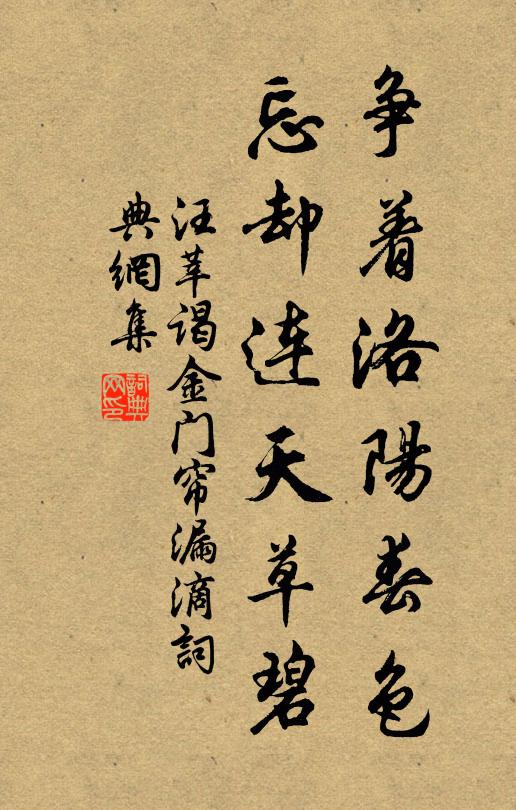 争着洛陽春色
忘却连天草碧
汪莘谒金门帘漏滴詞
典網集
詞典网印